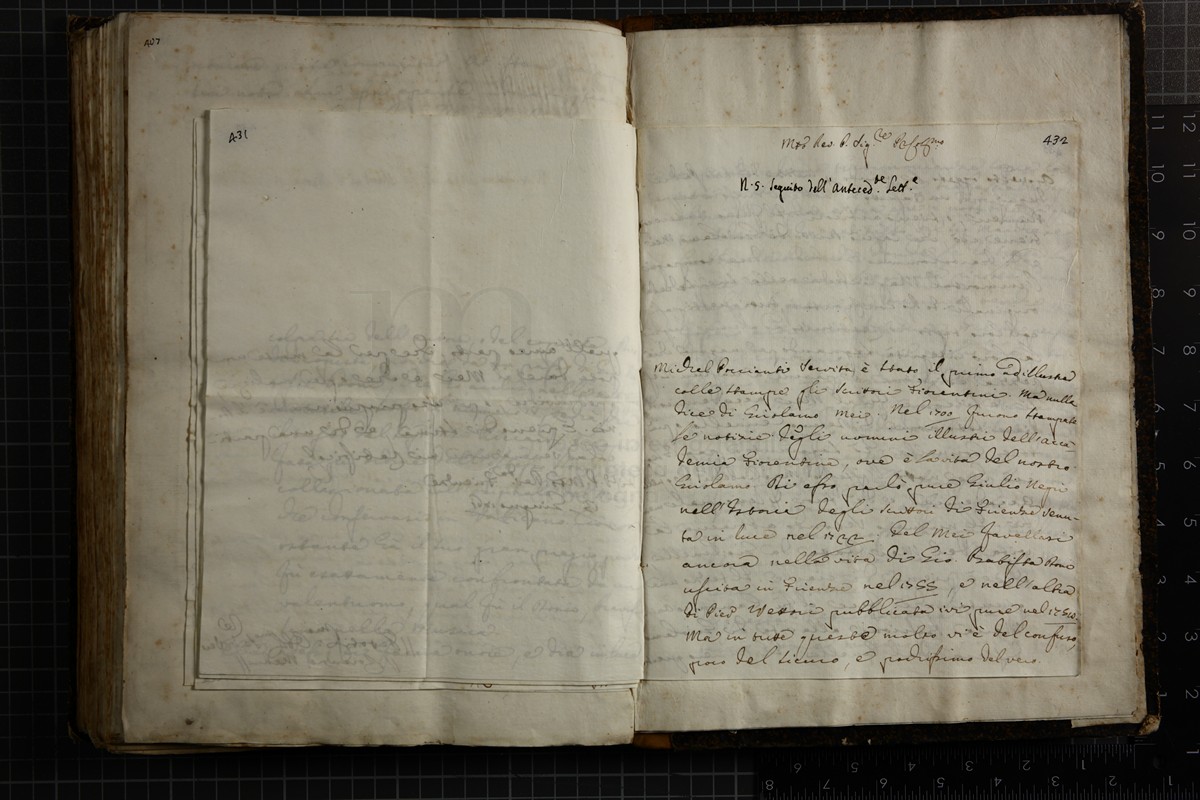 407
431
432
Molto Rev. P. Sig.re
N.S. Seguito dell' anteced.te Lett.a
Michel Poccianti Servita è stato il primo ad illustrar
colle stampe gli scritori Fiorentini. Ma nulla
dice di Girolamo Mei. Nel 1700 furono stampate
le notizie degli uomini illustri dell' acca-
demia Fiorentina, ove è la vita del nostro
Girolamo. Di esso parlò pure Giulio Negri
nell' Istoria degli scritori di Firenze venu-
ta in luce nel 1722. Del Mei favellasi
ancora nella vita di Gio. Batista Doni
uscita in Firenze nel 1755, e nell' altra
di Pier Vettori pubblicata ivi pure nel
Ma in tutte queste molto vi è del confuso,
poco del sicuro, e pochissimo del vero.